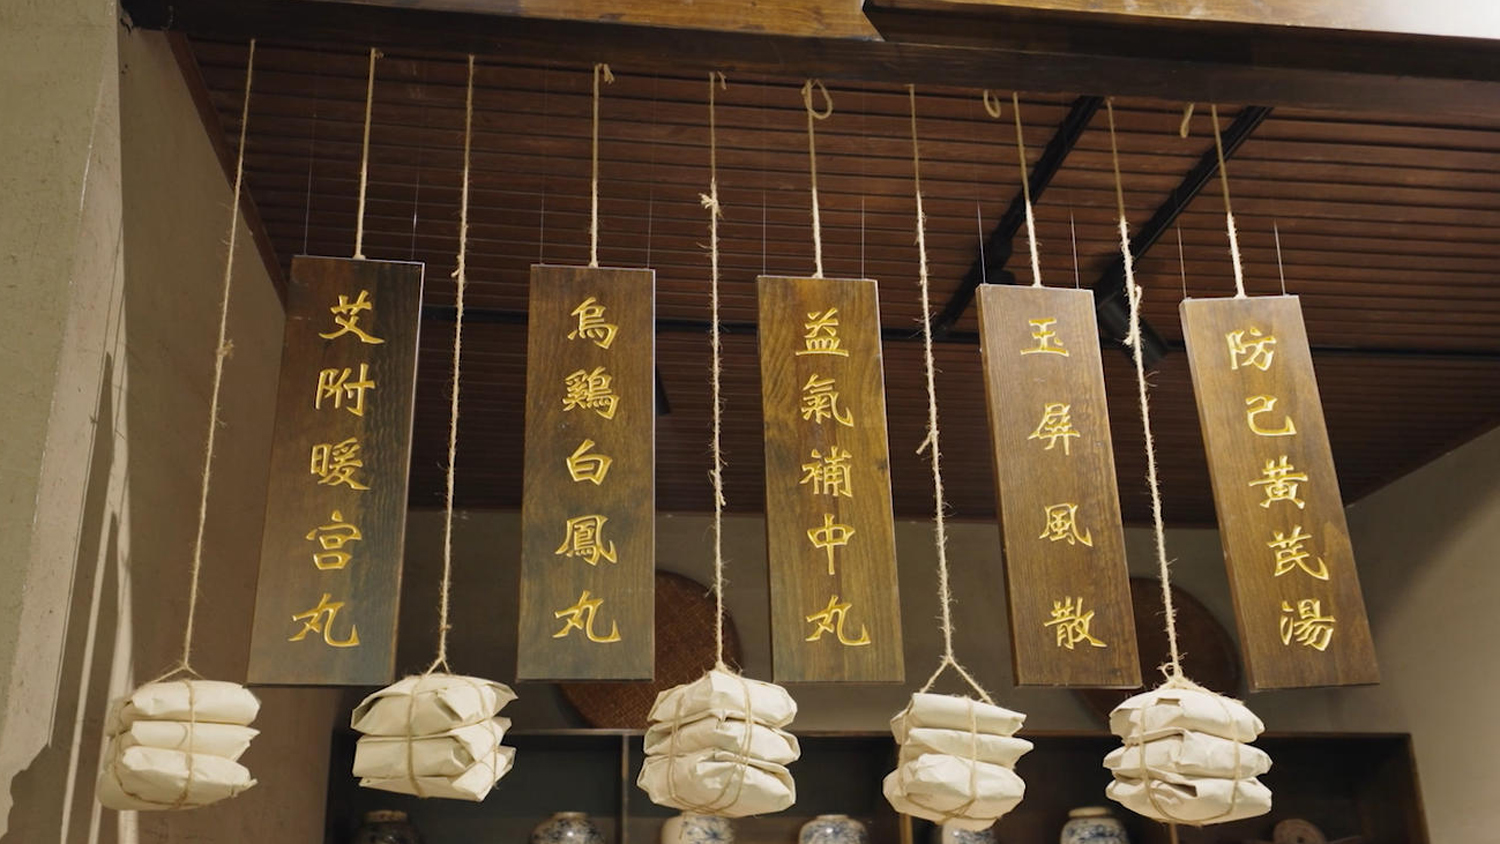 艾附暖宮丸
烏鷄白鳳丸
益氣補中丸
玉屏風散
防己黃芪湯